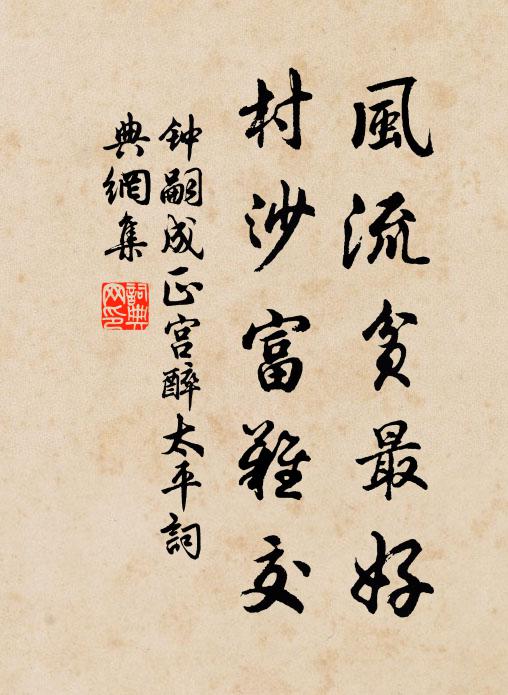 風流貧最好
村沙富難交
钟嗣成正宫醉太平詞
典網集
詞典
网印